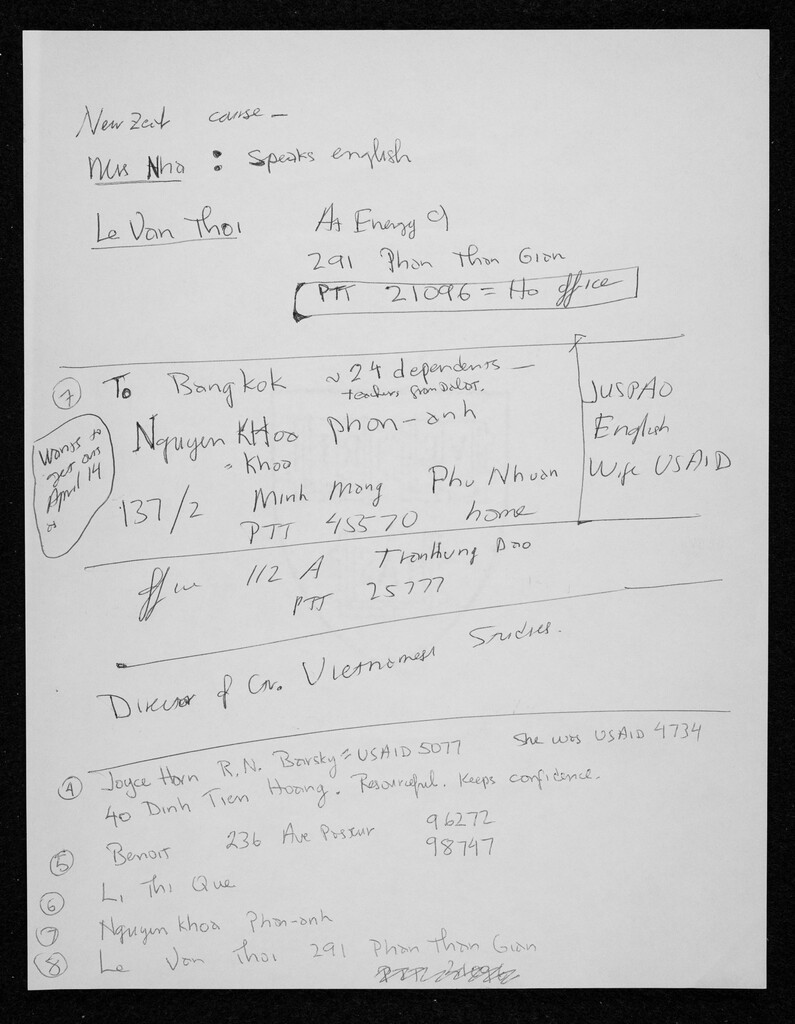 New Zeal course -
Mrs Nha : Speaks english
Le Van Thoi At Energy
291 Phan Than Gian
PTT 21096 = Ho office
7 To Bangkok ~ 24 dependents -
teachers from Dalat.
Nguyen KHoa phan-anh
= Khoa
Wants to get out April 14
137/2 Minh Mang Phu Nhuan
PTT 45570 home
JUSPAO
English
Wife USAID
office 112 A Tran Hung Dao
PTT 25777
Director of Vietnamese Studies.
4 Joyce Horn R.N. Barsky = USAID 5077 She was USAID 4734
40 Dinh Tien Hoang. Resourceful. Keeps confidence.
5 Benoit 236 Ave Pasteur 96272
98747
6 L, Thi Que
7 Nguyen Khoa Phan-anh
8 Le Van Thoi 291 Phan Than Gian